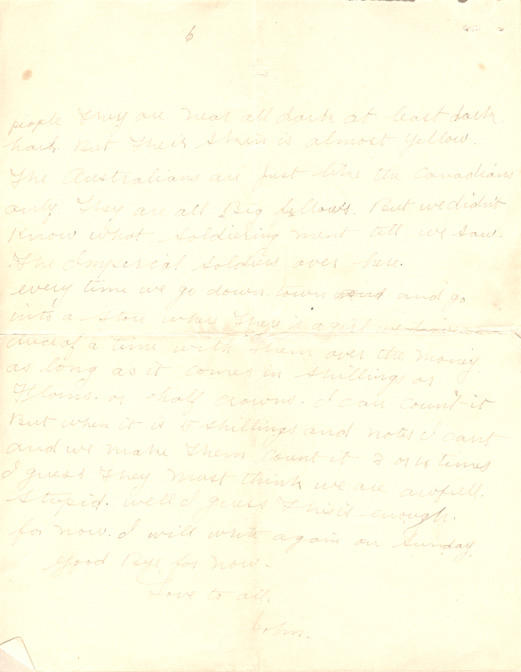 6
people They are near all dark at least dark
hair But Their Skin is almost yellow.
The Australians are just like the Canadians
only They are all Big fellows. But we didn't
know what soldiering ment till we saw
The Imperial soldiers over here.
every time we go down town and and go
into a store where There is a girl we have a
of a time with them over the money
as long as it comes in shillings or
or half crowns. I can count it
But when it is 5 shillings and notes I cant
and we make them count it 3 or 4 times
I guess They must think we are awfull
Stupid. well I guess This is enough.
for now. I will write again on Sunday
good Bye for now.
Love to all.
John.